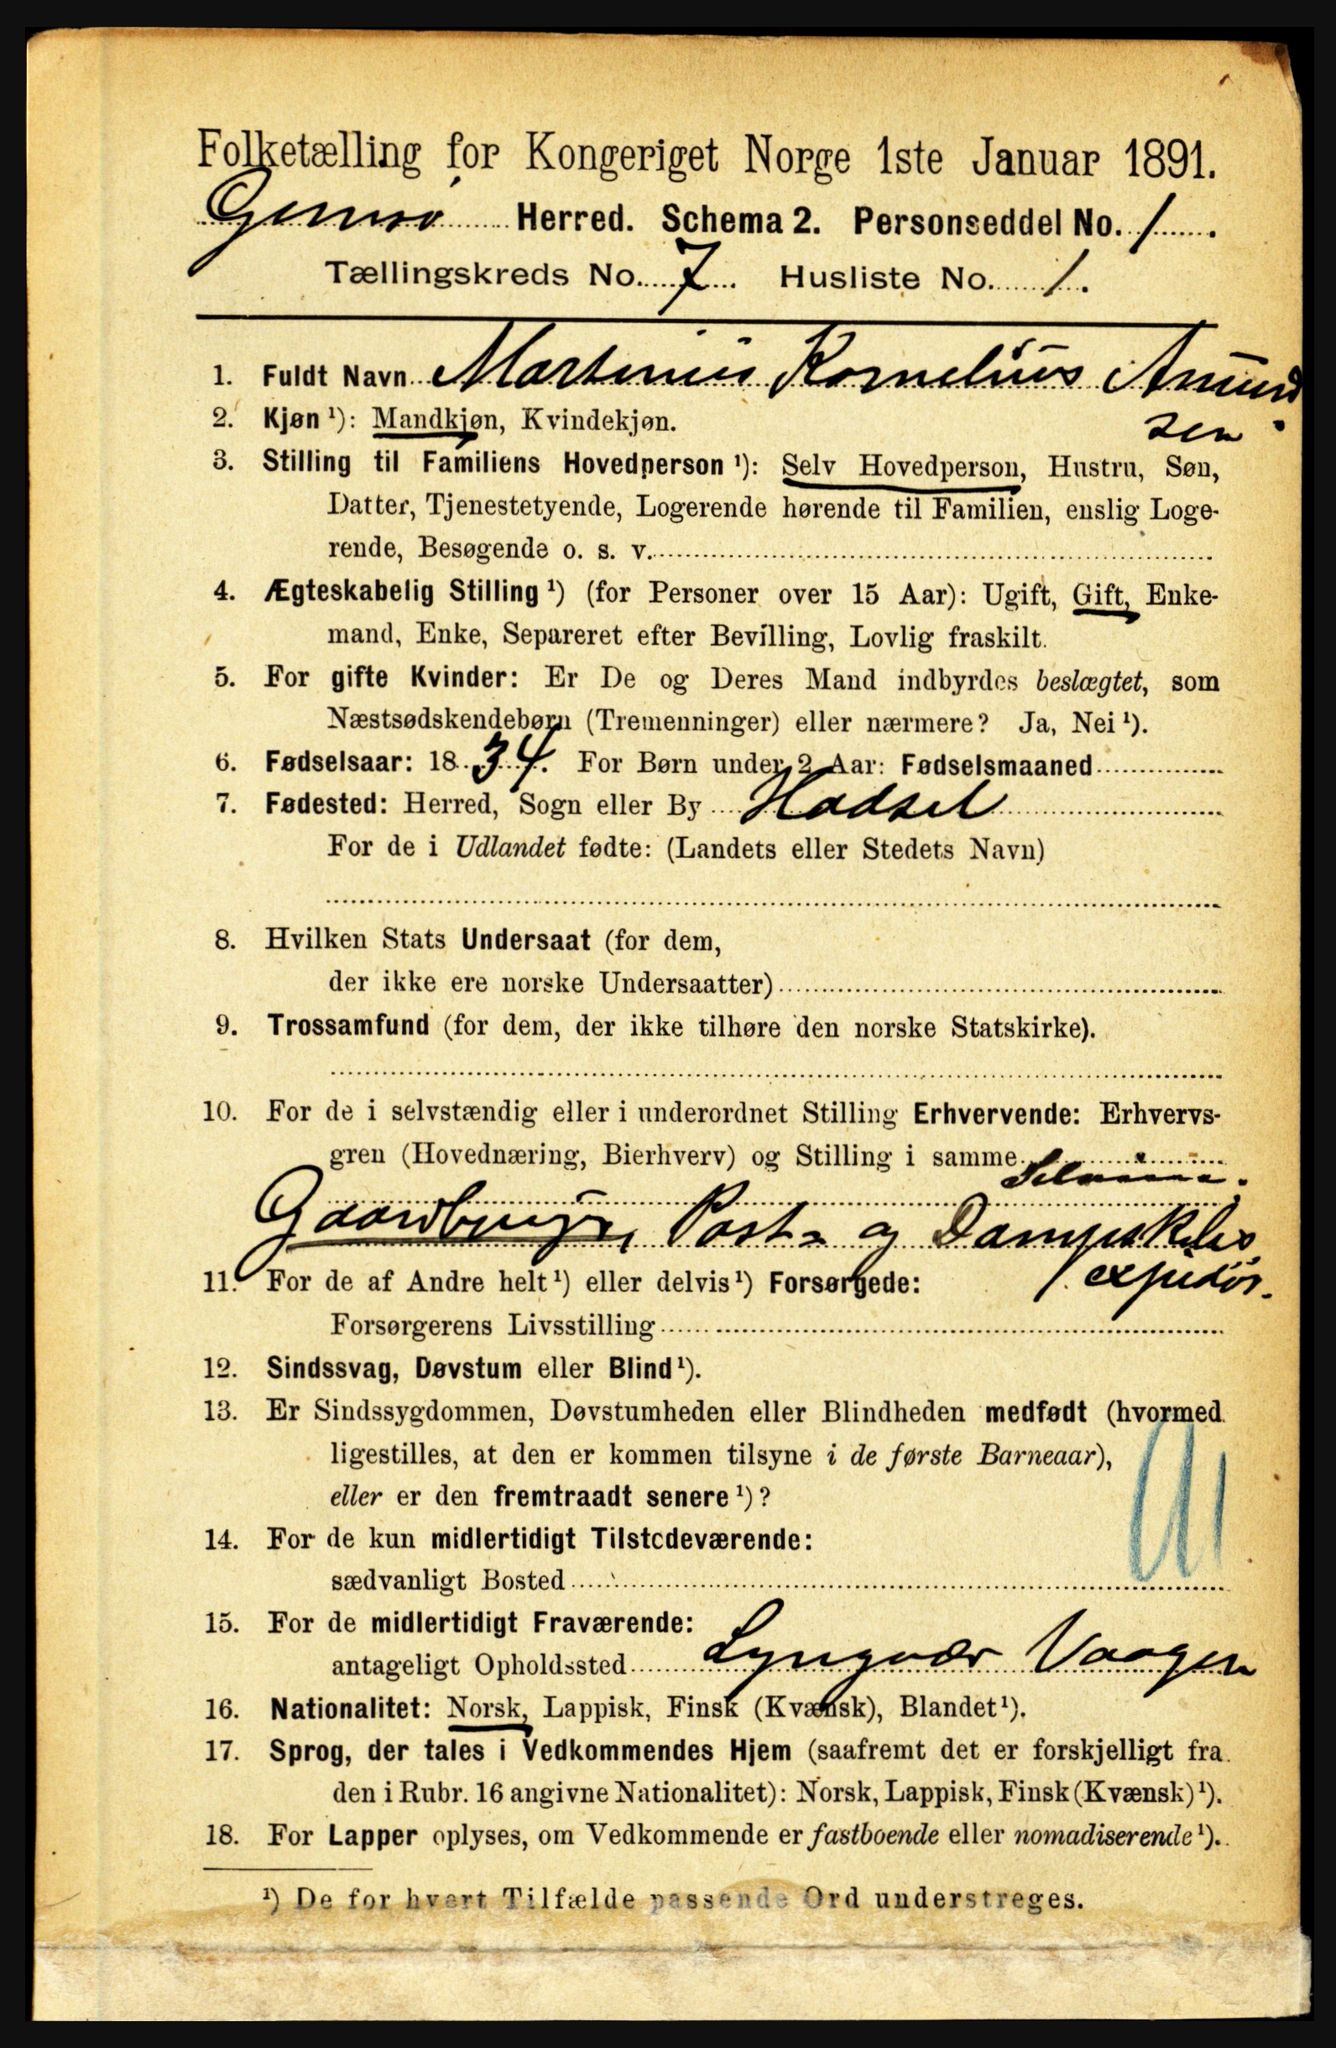 Folketælling for Kongeriget Norge 1ste Januar 1891.
Gimsø Herred. Schema 2. Personseddel No. 1.
Tællingskreds No. 7. Husliste No. 1.
1. Fuldt Navn Martinius Kornelius Amund
2. Kjøn ¹): Mandkjøn, Kvindekjøn.
sen
3. Stilling til Familiens Hovedperson ¹): Selv Hovedperson, Hustru, Søn,
Datter, Tjenestetyende, Logerende hørende til Familien, enslig Loge-
rende, Besøgende o. s. v.
4. Ægteskabelig Stilling ¹) (for Personer over 15 Aar): Ugift, Gift, Enke-
mand, Enke, Separeret efter Bevilling, Lovlig fraskilt.
5. For gifte Kvinder: Er De og Deres Mand indbyrdes beslægtet, som
Næstsødskendebørn (Tremenninger) eller nærmere? Ja, Nei ¹).
6. Fødselsaar: 1834. For Børn under 2 Aar: Fødselsmaaned
7. Fødested: Herred, Sogn eller By Hadsel
For de i Udlandet fødte: (Landets eller Stedets Navn)
8. Hvilken Stats Undersaat (for dem,
der ikke ere norske Undersaatter)
9. Trossamfund (for dem, der ikke tilhøre den norske Statskirke).
10. For de i selvstændig eller i underordnet Stilling Erhvervende: Erhvervs-
gren (Hovednæring, Bierhverv) og Stilling i samme
Gaardbruger, Post- og Dampskibs
expeditør.
11. For de af Andre helt ¹) eller delvis ¹) Forsørgede:
Forsørgerens Livsstilling
12. Sindssvag, Døvstum eller Blind ¹).
13. Er Sindssygdommen, Døvstumheden eller Blindheden medfødt (hvormed
ligestilles, at den er kommen tilsyne i de første Barneaar),
eller er den fremtraadt senere ¹)?
14. For de kun midlertidigt Tilstedeværende:
sædvanligt Bosted
15. For de midlertidigt Fraværende:
antageligt Opholdssted Lyngvær Vaagen
16. Nationalitet: Norsk, Lappisk, Finsk (Kvænsk), Blandet ¹).
17. Sprog, der tales i Vedkommendes Hjem (saafremt det er forskjelligt fra
den i Rubr. 16 angivne Nationalitet): Norsk, Lappisk, Finsk (Kvænsk) ¹).
18. For Lapper oplyses, om Vedkommende er fastboende eller nomadiserende ¹).
¹) De for hvert Tilfælde passende Ord understreges.